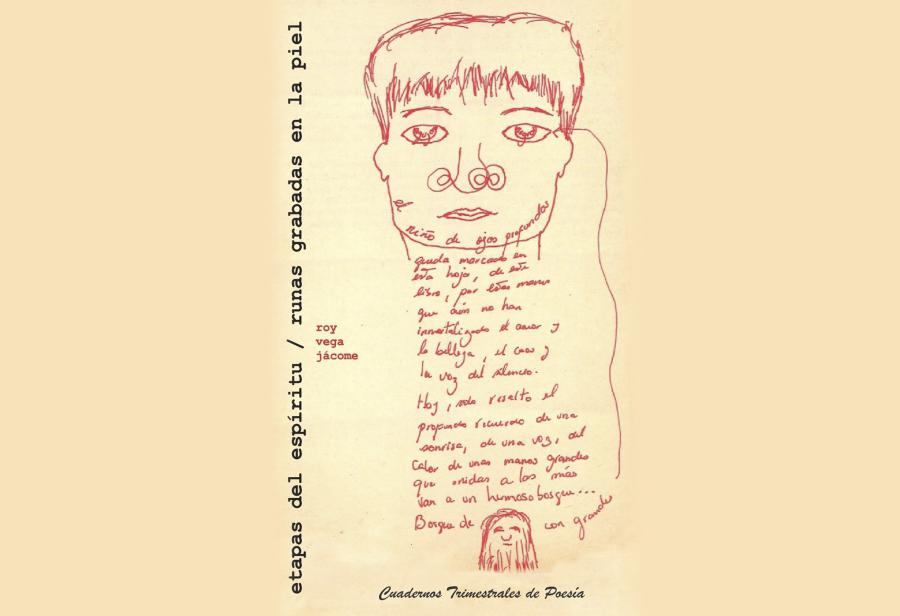 etapas del espíritu / runas grabadas en la piel
roy
vega
jácome
el niño de ojos profundos
queda marcado en
esta hoja, de este
libro, por estas manos
que aún no han
inmortalizado el amor y
la belleza, el caos y
la voz del silencio.
Hoy, solo resalto el
profundo recuerdo de una
sonrisa, de una voz, del
Calor de unas manos grandes
que unidas a las mías
van a un hermoso bosque...
Bosque de
con grandes
Cuadernos Trimestrales de Poesía